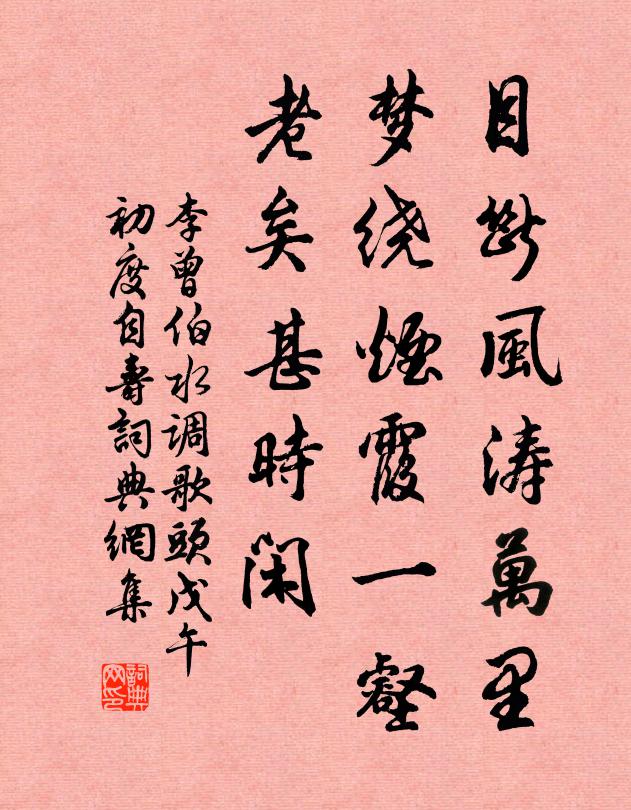 目断風涛萬里
梦绕煙霞一壑
老矣甚時闲
李曾伯水调歌頭戊午
初度自壽詞典網集
詞典网印